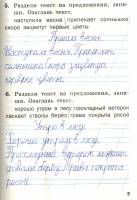 5. Раздели текст на предложения, запи-
ши. Озаглавь текст.
наступила весна припекает солнышко
скоро зацветут первые цветы
Пришла весна.
Наступила весна. Припекает
солнышко. Скоро зацветут
первые цветы.
6. Раздели текст на предложения, запи-
ши. Озаглавь текст.
хорошо утром в лесу прохладный ветерок
ласкает стволы берёз трава покрыта росой
Утро в лесу.
Хорошо утром в лесу.
Прохладный ветерок ласкает
стволы берёз. Трава покрыта
росой.
5